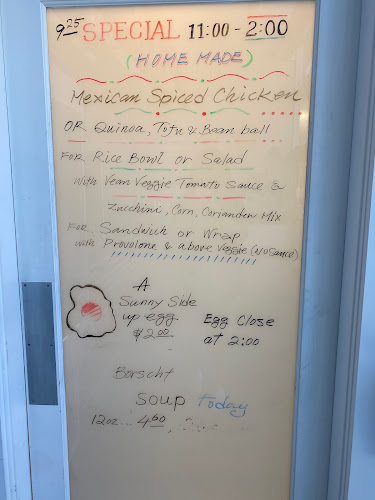 9.25 SPECIAL 11:00 - 2:00
(HOME MADE)
Mexican Spiced Chicken
OR Quinoa, Tofu & Bean ball
FOR Rice Bowl or Salad
with Vean Veggie Tomato Sauce &
Zucchini, Corn, Coriander Mix
FOR Sandwich or Wrap
with Provolone & above Veggie (No Sauce)
A
Sunny Side
up egg
$2.00
Egg Close
at 2:00
Borscht
Soup Today
12oz... 4.60